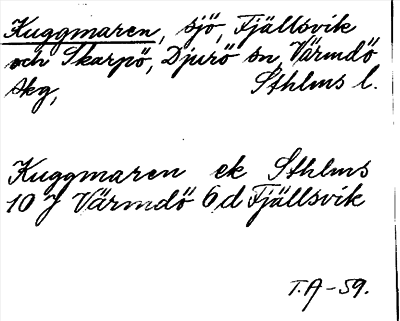 Kuggmaren, sjö, Fjällsvik
och Skarpö, Djurö sn, Värmdö
skg, Sthlms l.
Kuggmaren ek Sthlms
10 J Värmdö 6 d Fjällsvik
T.A-59.